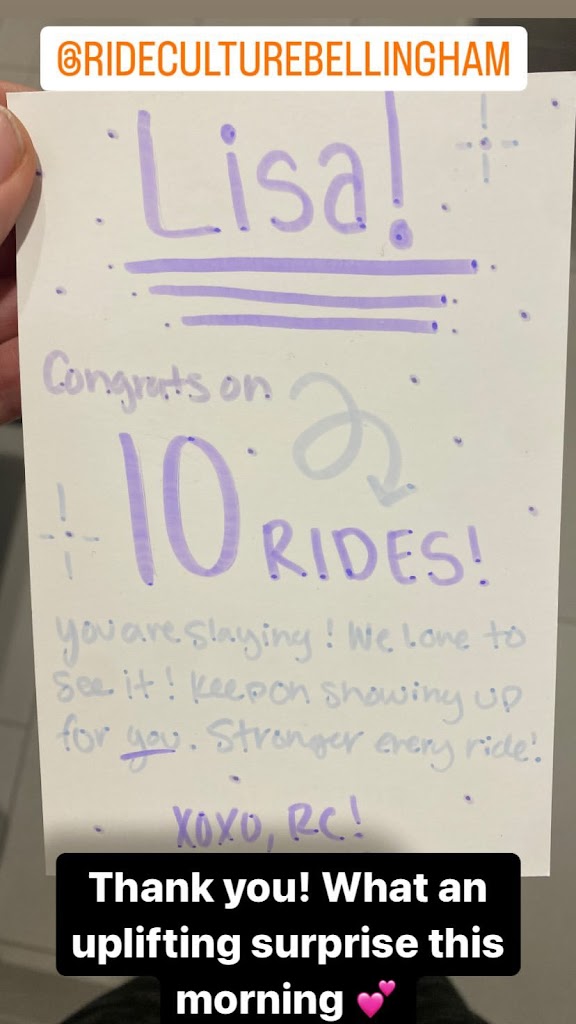 @RIDECULTUREBELLINGHAM
Lisa!
Congrats on
10 RIDES!
you are slaying! We love to
see it! Keep on showing up
for you. Stronger every ride!
XOXO, RC!
Thank you! What an
uplifting surprise this
morning 💕